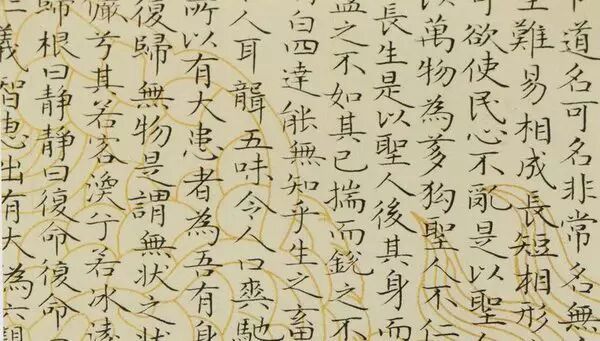 道名可名非常名無
難易相成長短相形
欲使民心不亂是以聖
以萬物為芻狗聖人不仁
長生是以聖人後其身而
盈之不如其已揣而銳之不
白四達能無知乎生之畜
人耳聾五味令人口爽馳
所以有大患者為吾有身
復歸無物是謂無狀之狀
儼兮其若客渙兮若冰凌
歸根曰靜靜曰復命復命
義智惠出有大為六親